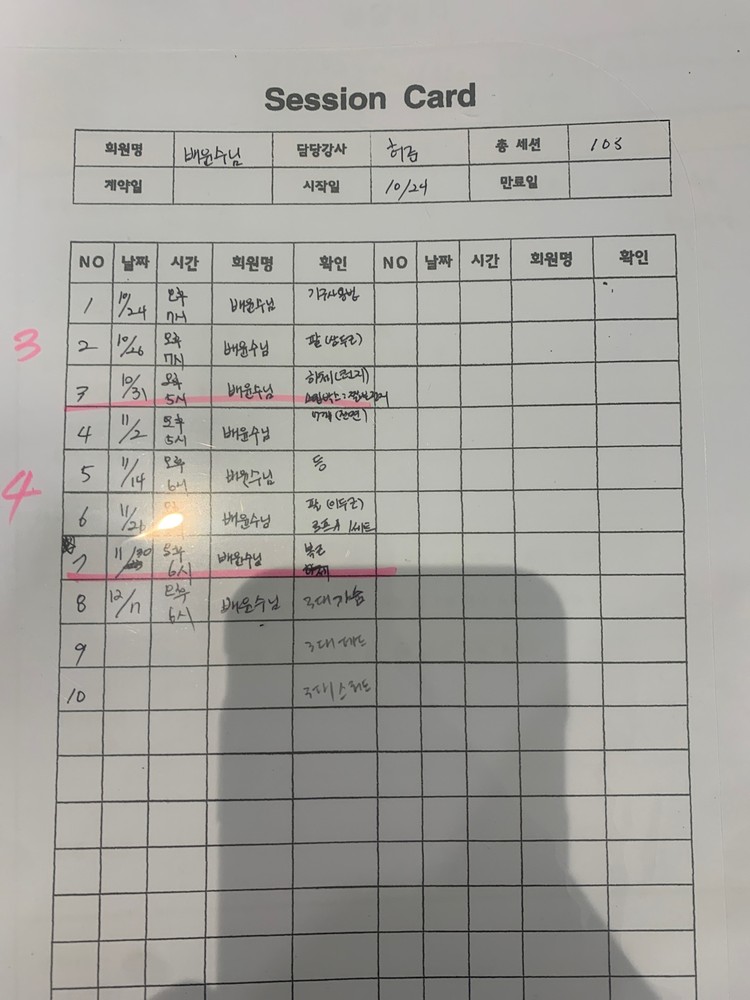 Session Card
회원명 배윤수님 담당강사 허준 총 세션 10S
계약일 시작일 10/24 만료일
NO 날짜 시간 회원명 확인 NO 날짜 시간 회원명 확인
1 10/24 오후 7시 배윤수님 기구사용법
3
2 10/26 오후 7시 배윤수님 팔(삼두)
3 10/31 오후 5시 배윤수님 하체(전지)
4 11/2 오후 5시 배윤수님 어깨(전면)
4
5 11/14 오후 6시 배윤수님 등
6 11/21 배윤수님 팔(이두근)
1세트
7 11/30 오후 6시 배윤수님 복근
8 12/7 오후 6시 배윤수님 3대 가슴
9 3대 데드
10 3대 스쿼트